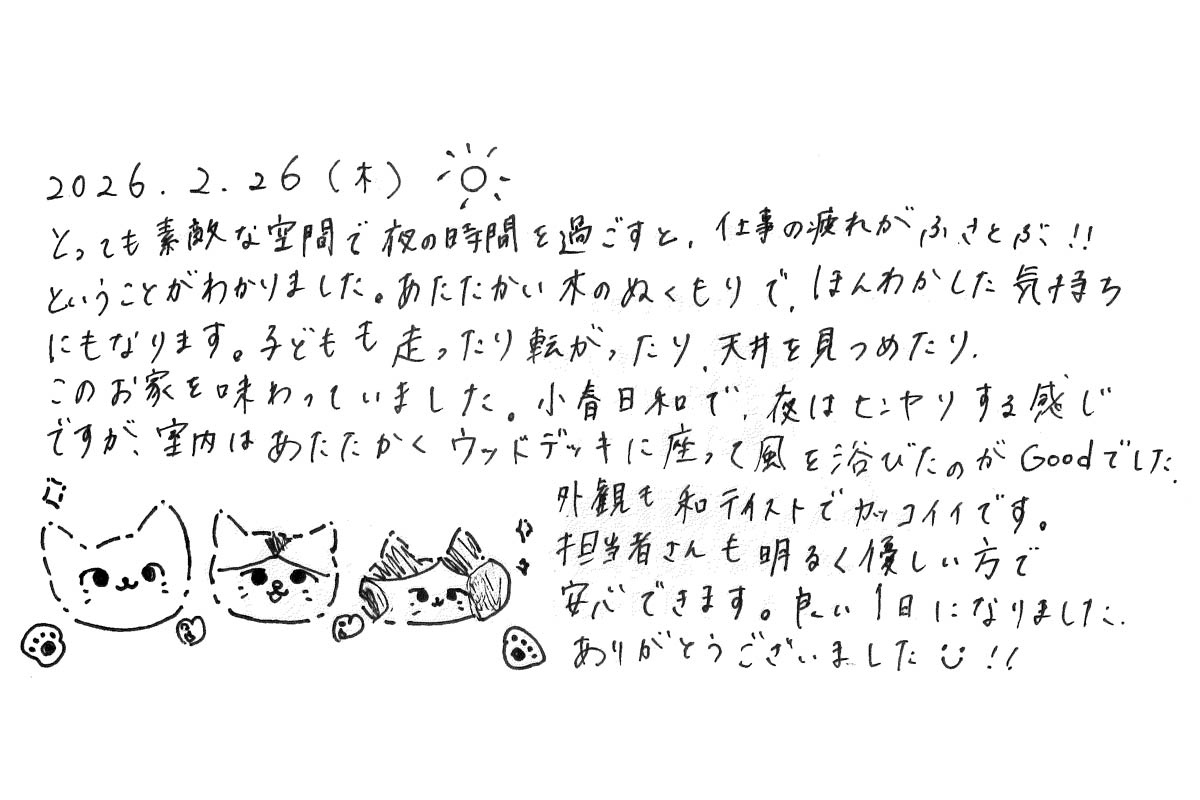 2026.2.26(木)
とっても素敵な空間で夜の時間を過ごすと、仕事の疲れがふきとぶ!!
ということがわかりました。あたたかい木のぬくもりで、ほんわかした気持ち
にもなります。子どもも走ったり転がったり、天井を見つめたり、
このお家を味わっていました。小春日和で、夜はヒンヤリする感じ
ですが、室内はあたたかくウッドデッキに座って風を浴びたのがGoodでした。
外観も和テイストでカッコイイです。
担当者さんも明るく優しい方で
安心できます。良い1日になりました。
ありがとうございました!!